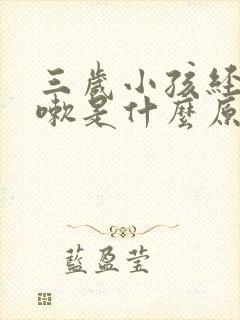 三歲小孩經
嗽是什麼原
藍盈瑩